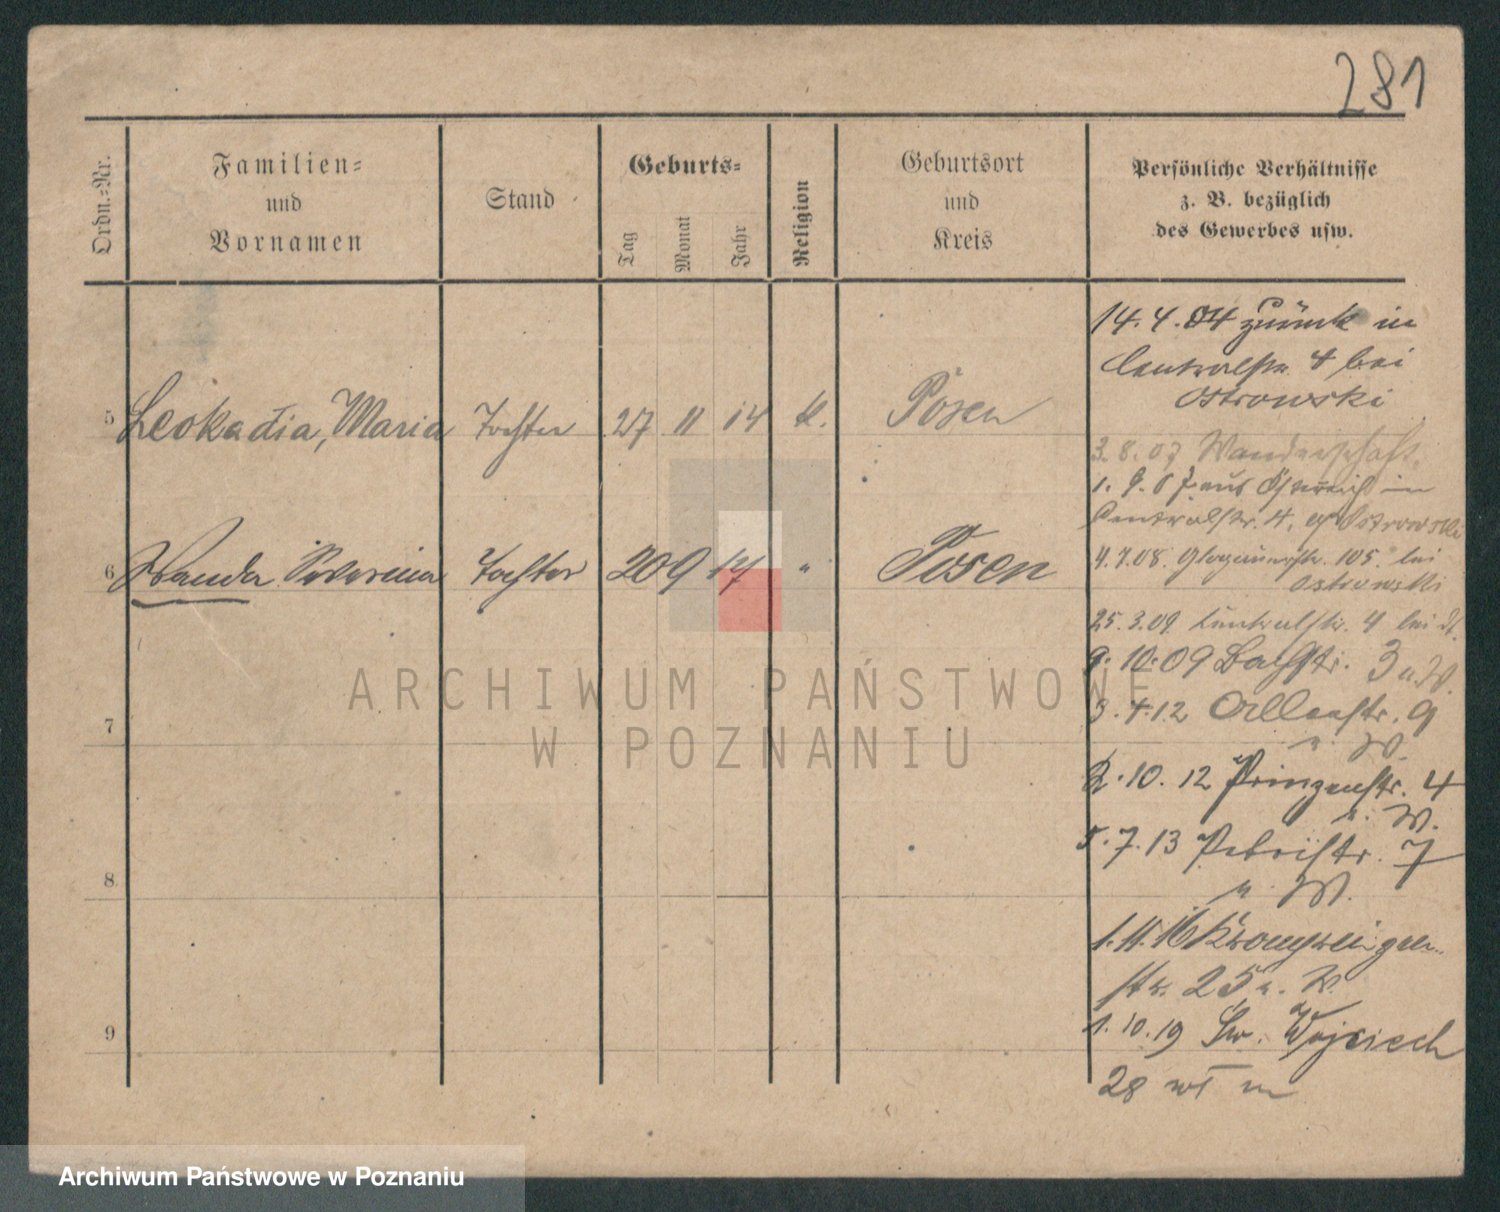 281
Ordn.-Nr.
Familien-
und
Vornamen
Stand
Geburts-
Tag
Monat
Jahr
Religion
Geburtsort
und
Kreis
Persönliche Verhältnisse
z. B. bezüglich
des Gewerbes usw.
5 Leokadia, Maria Tochter 27 11 14 k. Posen
6 Wanda Tochter 20 9 17 " Posen
7
8
9
14.4.04 zurück in
Centralstr. 4 bei
Ostrowski
3.8.07 Wanderschaft.
1.9.07 aus Österreich in
Centralstr. 4. Ostrowski
4.7.08. Glogauerstr. 105. bei
Ostrowski
25.3.09 Centralstr. 4 bei
9.10.09 Bachstr. 3 u. W.
3.4.12 9
u. W.
2.10.12 Prinzenstr. 4
u. W.
5.7.13 Petristr. 7
u. W.
1.11.16 Kronprinzen-
str. 25 u. W.
1.10.19 Św. Wojciech
28 wł m
ARCHIWUM PAŃSTWOWE
W POZNANIU
Archiwum Państwowe w Poznaniu